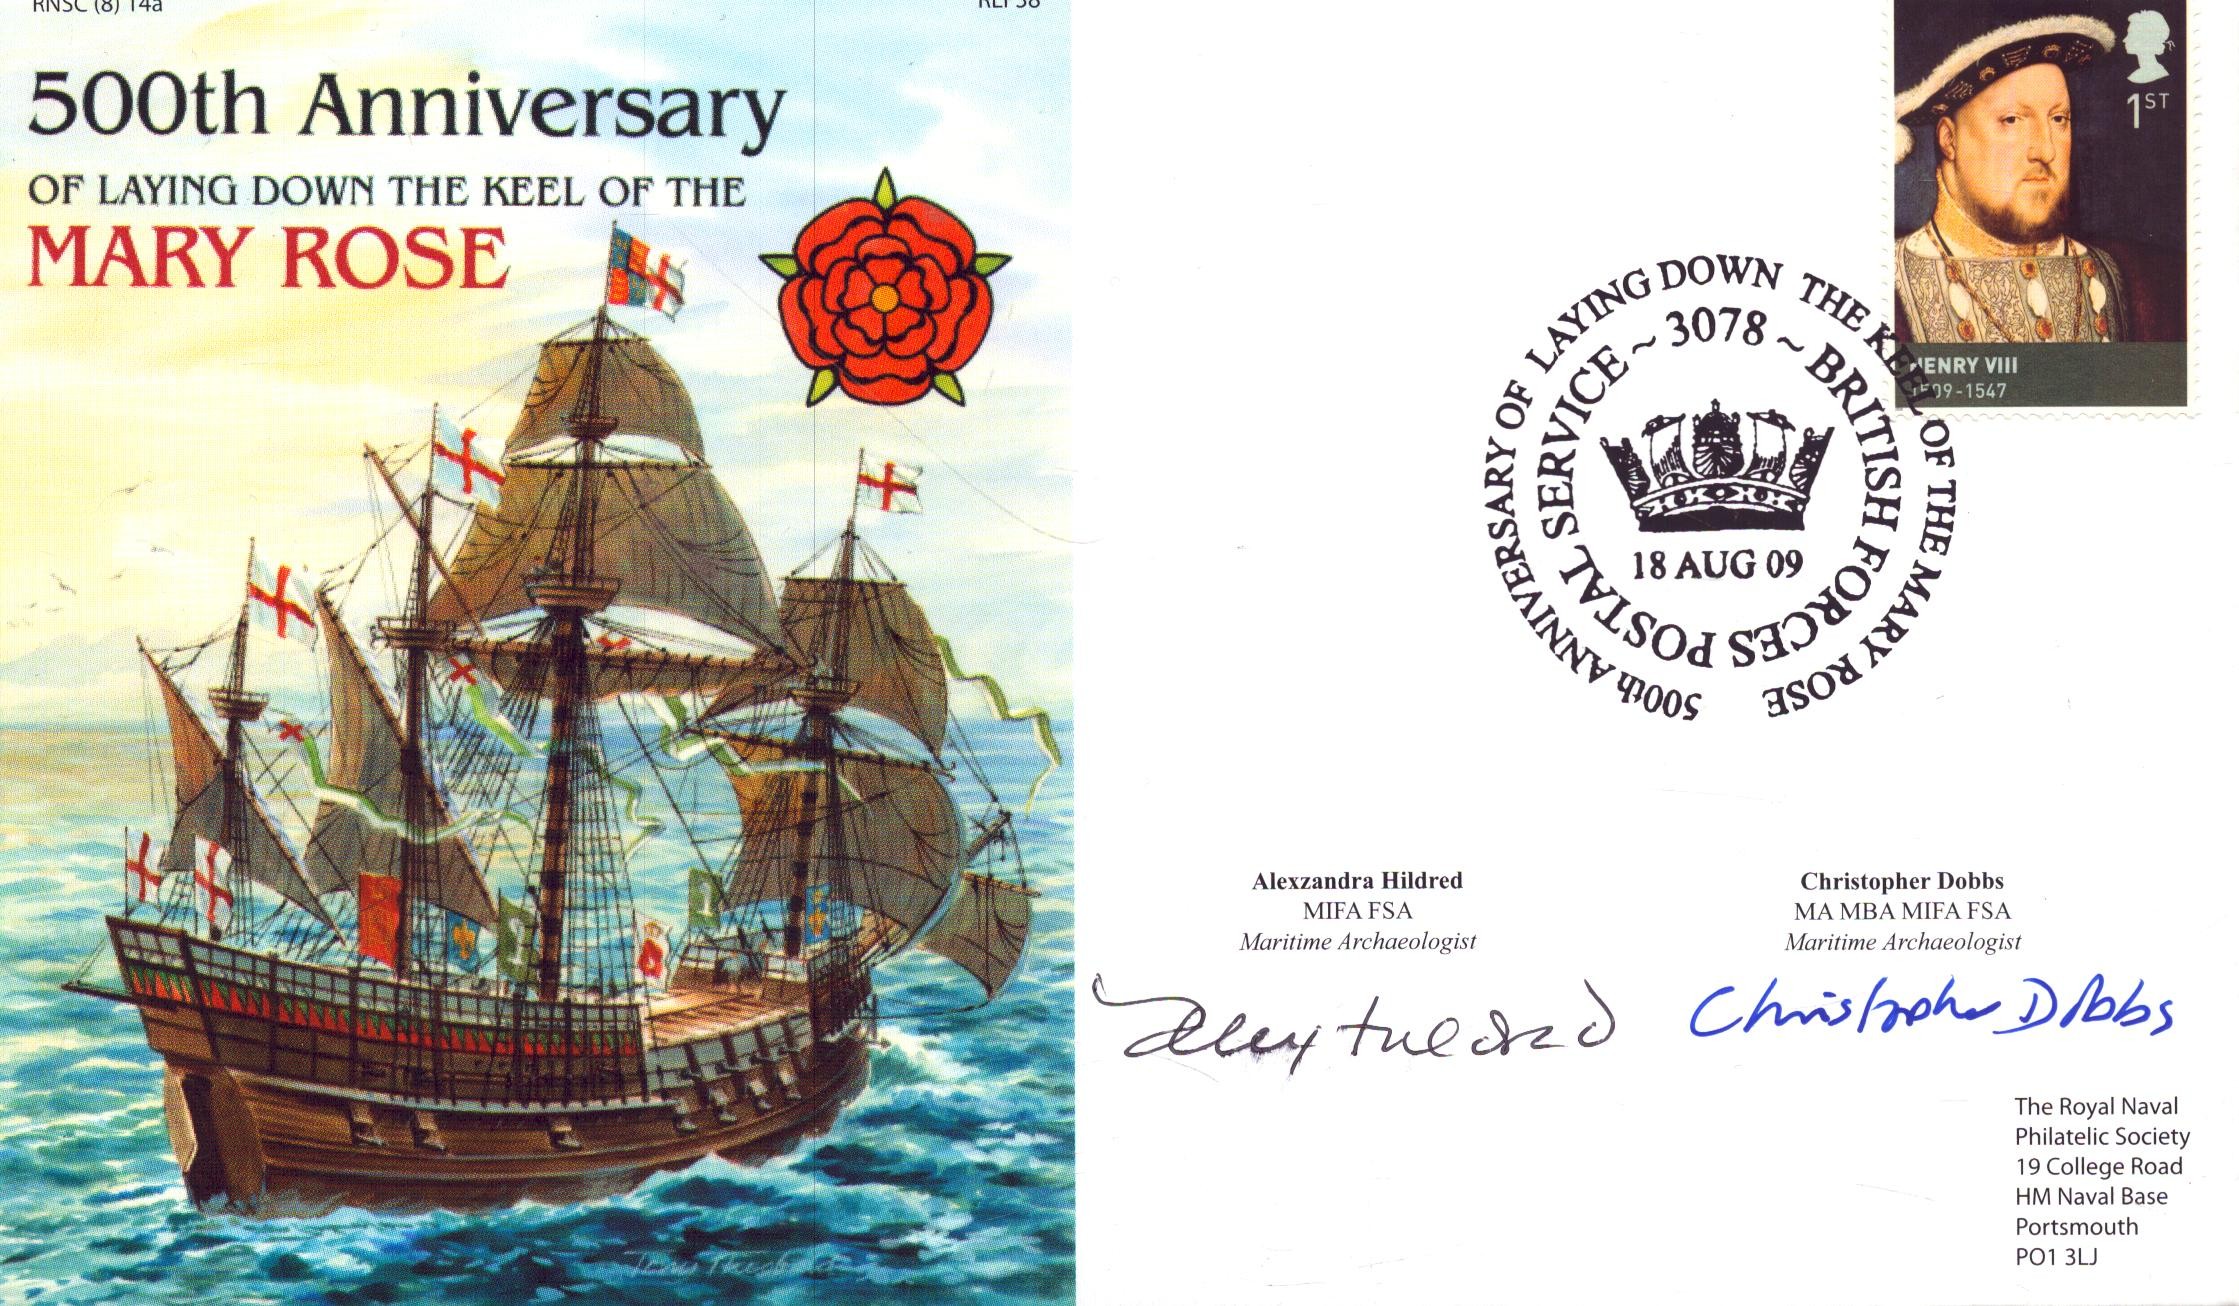 RNSC (8) 14a
500th Anniversary
OF LAYING DOWN THE KEEL OF THE
MARY ROSE
1ST
HENRY VIII
1509-1547
500th ANNIVERSARY OF LAYING DOWN THE KEEL OF THE MARY ROSE
BRITISH FORCES POSTAL SERVICE ~ 3078 ~
18 AUG 09
Alexzandra Hildred
MIFA FSA
Maritime Archaeologist
Alex Hildred
Christopher Dobbs
MA MBA MIFA FSA
Maritime Archaeologist
Christopher Dobbs
The Royal Naval
Philatelic Society
19 College Road
HM Naval Base
Portsmouth
PO1 3LJ